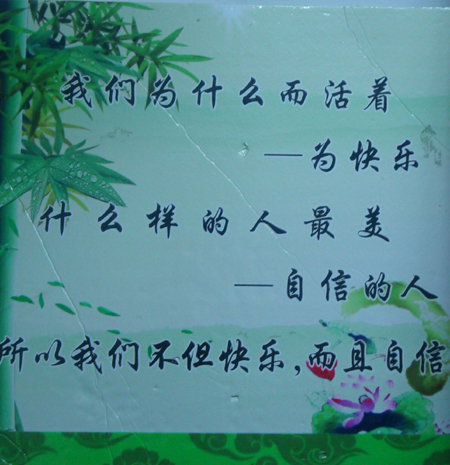 我们为什么而活着
—为快乐
什么样的人最美
—自信的人
所以我们不但快乐,而且自信